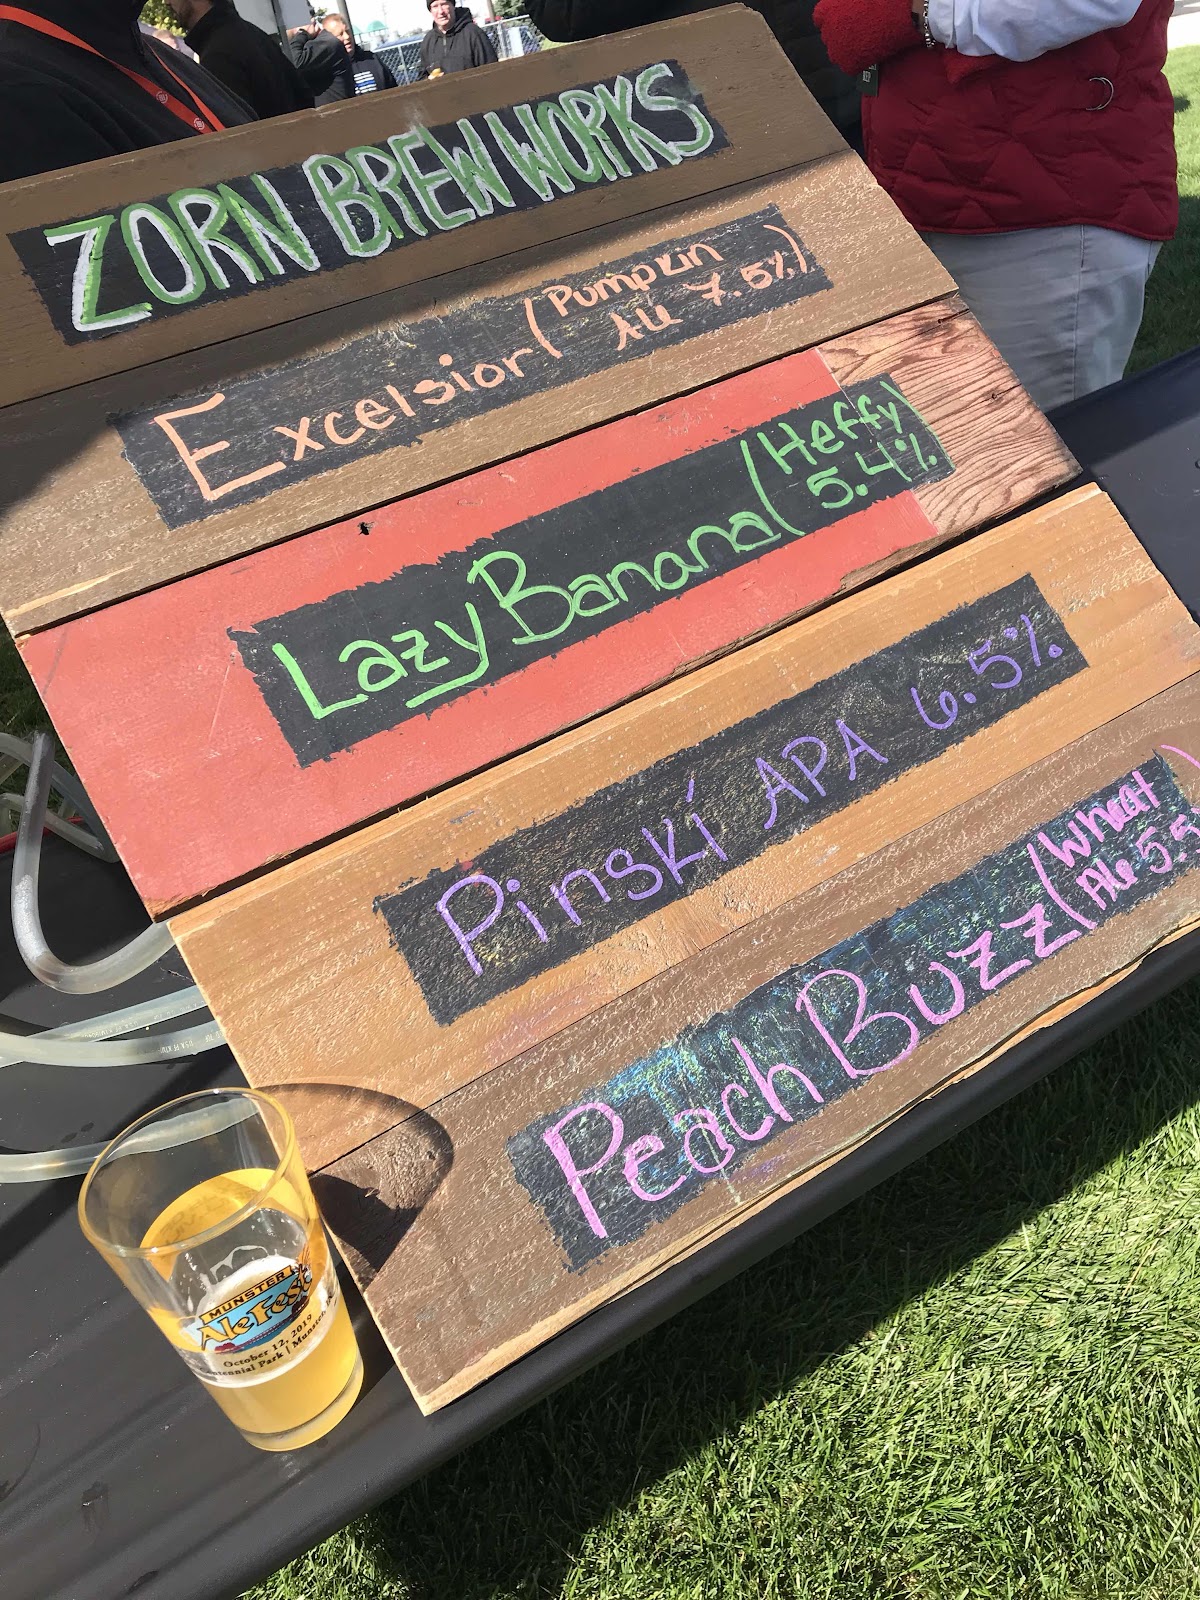 ZORN BREW WORKS
Excelsior (Pumpkin
Ale 7.5%)
Lazy Banana (Heffy
5.4%
Pinski APA 6.5%
Peach Buzz (Wheat
Ale 5.5
MUNSTER
Ale Fest
October 12, 2019
Centennial Park | Munster